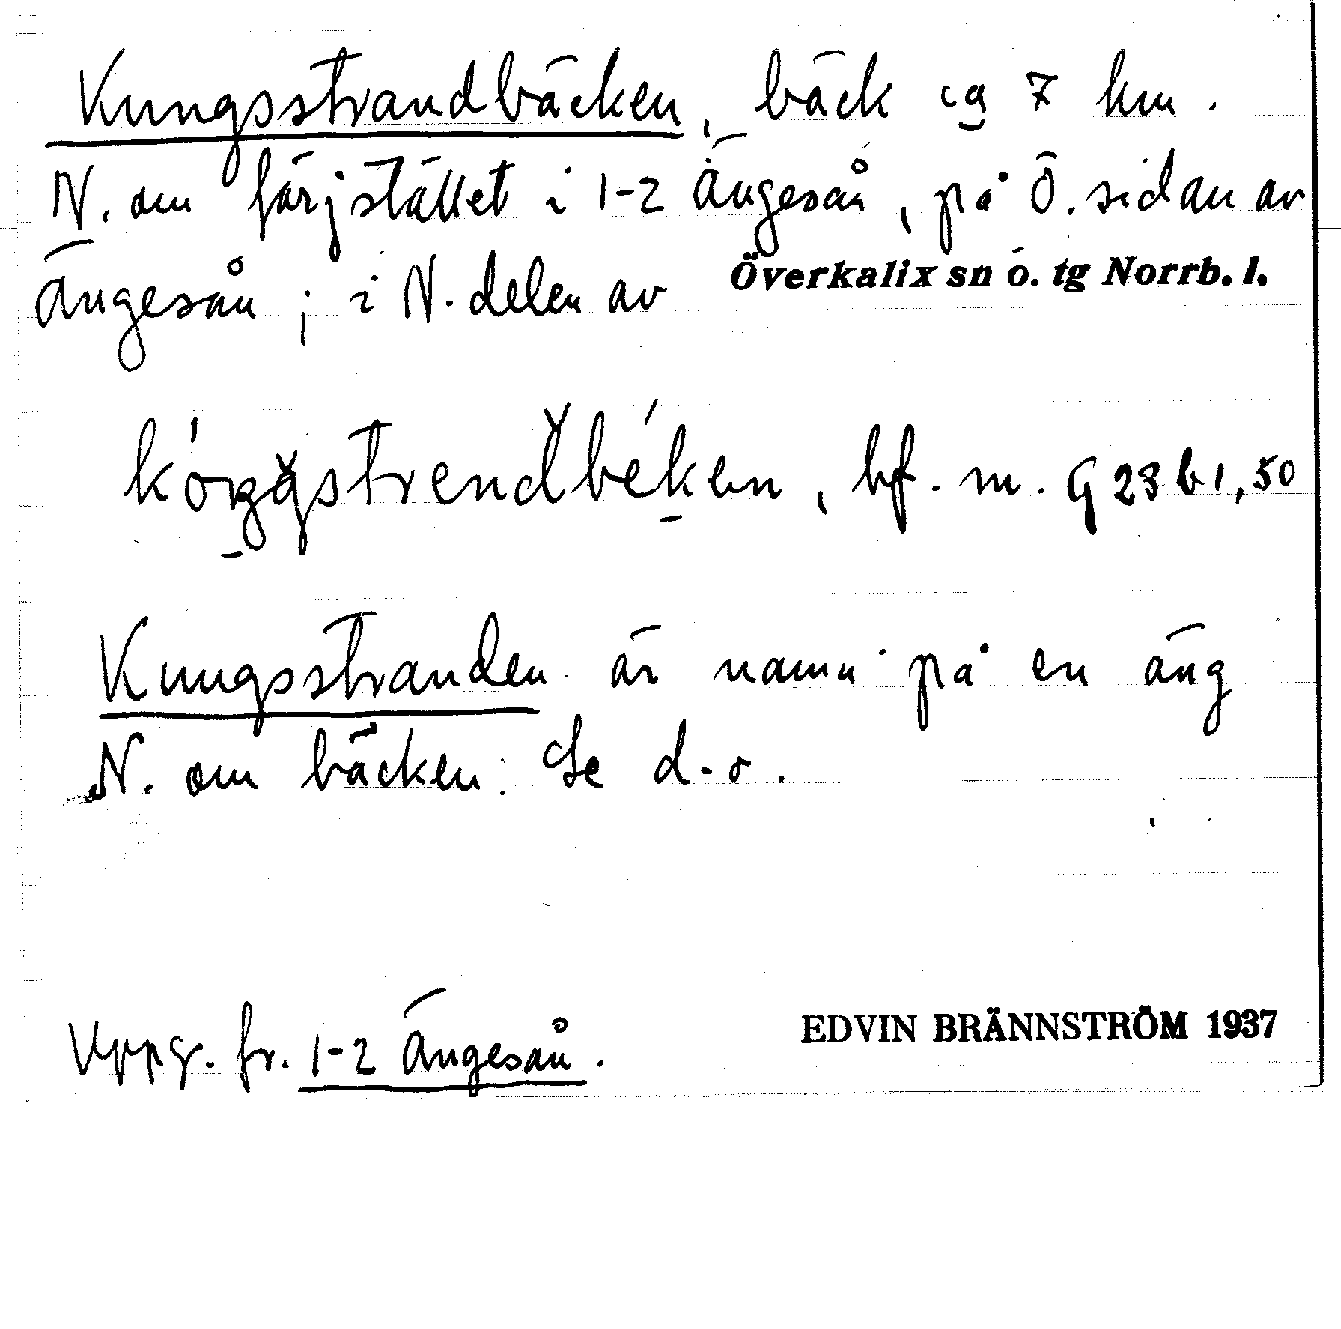 Kungsstrandbäcken, bäck ca 7 km.
N. om färjstället i 1-2 Ängeså, på Ö. sidan av
Ängesån; i N. delen av Överkalix sn o. tg Norrb. l.
bf. m. G 23 b 1, 50
Kungsstranden är namn på en äng
N. om bäcken. Se d. o.
Uppg. fr. 1-2 Ängeså.
EDVIN BRÄNNSTRÖM 1937